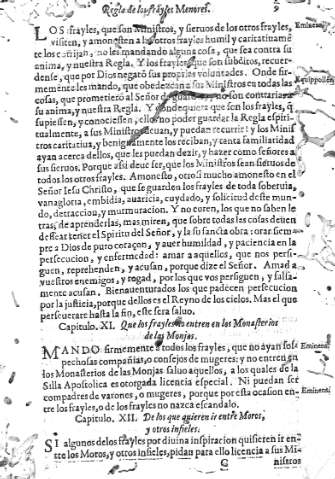 Regla de los frayles Menores. 9
LOS frayles, que son Ministros, y sieruos de los otros frayles,
visiten, y amonesten a los otros frayles humil y caritatiuamẽ
te los corrijan, no les mandando alguna cosa, que sea contra su
anima, y nuestra Regla. Y los frayles que son subditos, recuer-
dense, que por Dios negarõ sus proprias voluntades. Onde fir-
memente les mando, que obedezcan a sus Ministros en todas las
cosas, que prometierõ al Señor guardar no son contrarias a
su anima, y nuestra Regla. Y donde quiera que son los frayles, q̃
supiessen, y conociessen, ellos no poder guardar la Regla espiri-
tualmente, a sus Ministros deuan, y puedan recurrir: y los Minis
tros caritatiua, y benignamente los reciban, y tanta familiaridad
ayan acerca dellos, que les puedan dezir, y hazer como señores a
sus sieruos. Porque assi deue ser, que los Ministros sean sieruos de
todos los otros frayles. Amonesto, otrosi mucho amonesto en el
Señor Iesu Christo, que se guarden los frayles de toda soberuia,
vanagloria, embidia, auaricia, cuydado, y solicitud deste mun-
do, detraccion, y murmuracion. Y no curen, los que no saben le
tras, de aprenderlas, mas miren, que sobre todas las cosas deuen
dessear tener el Spiritu del Señor, y la su sancta obra: orar siem-
pre a Dios de puro coraçon, y auer humildad, y paciencia en la
persecucion, y enfermedad: amar a aquellos, que nos persi-
guen, reprehenden, y acusan, porque dize el Señor. Amad a
vuestros enemigos, y rogad, por los que vos persiguen, y falsa-
mente acusan, Bienauenturados los que padecen persecucion
por la justicia, porque dellos es el Reyno de los cielos. Mas el que
perseuerare hasta la fin, este sera saluo.
Capitulo. XI. Que los frayles no entren en los Monasterios
de las Monjas.
MANDO firmemente a todos los frayles, que no ayan sos
pechosas compañias, o consejos de mugeres: y no entren en
los Monasterios de las Monjas saluo aquellos, a los quales de la
Silla Apostolica es otorgada licencia especial. Ni puedan ser
compadres de varones, o mugeres, porque por esta ocasion en
tre los frayles, o de los frayles no nazca escandalo.
Capitulo. XII. De los que quieren ir entre Moros,
y otros infieles.
SI algunos de los frayles por diuina inspiracion quisieren ir en-
tre los Moros, y otros infieles, pidan para ello licencia a sus Mi-
C nistros
Equippollēt